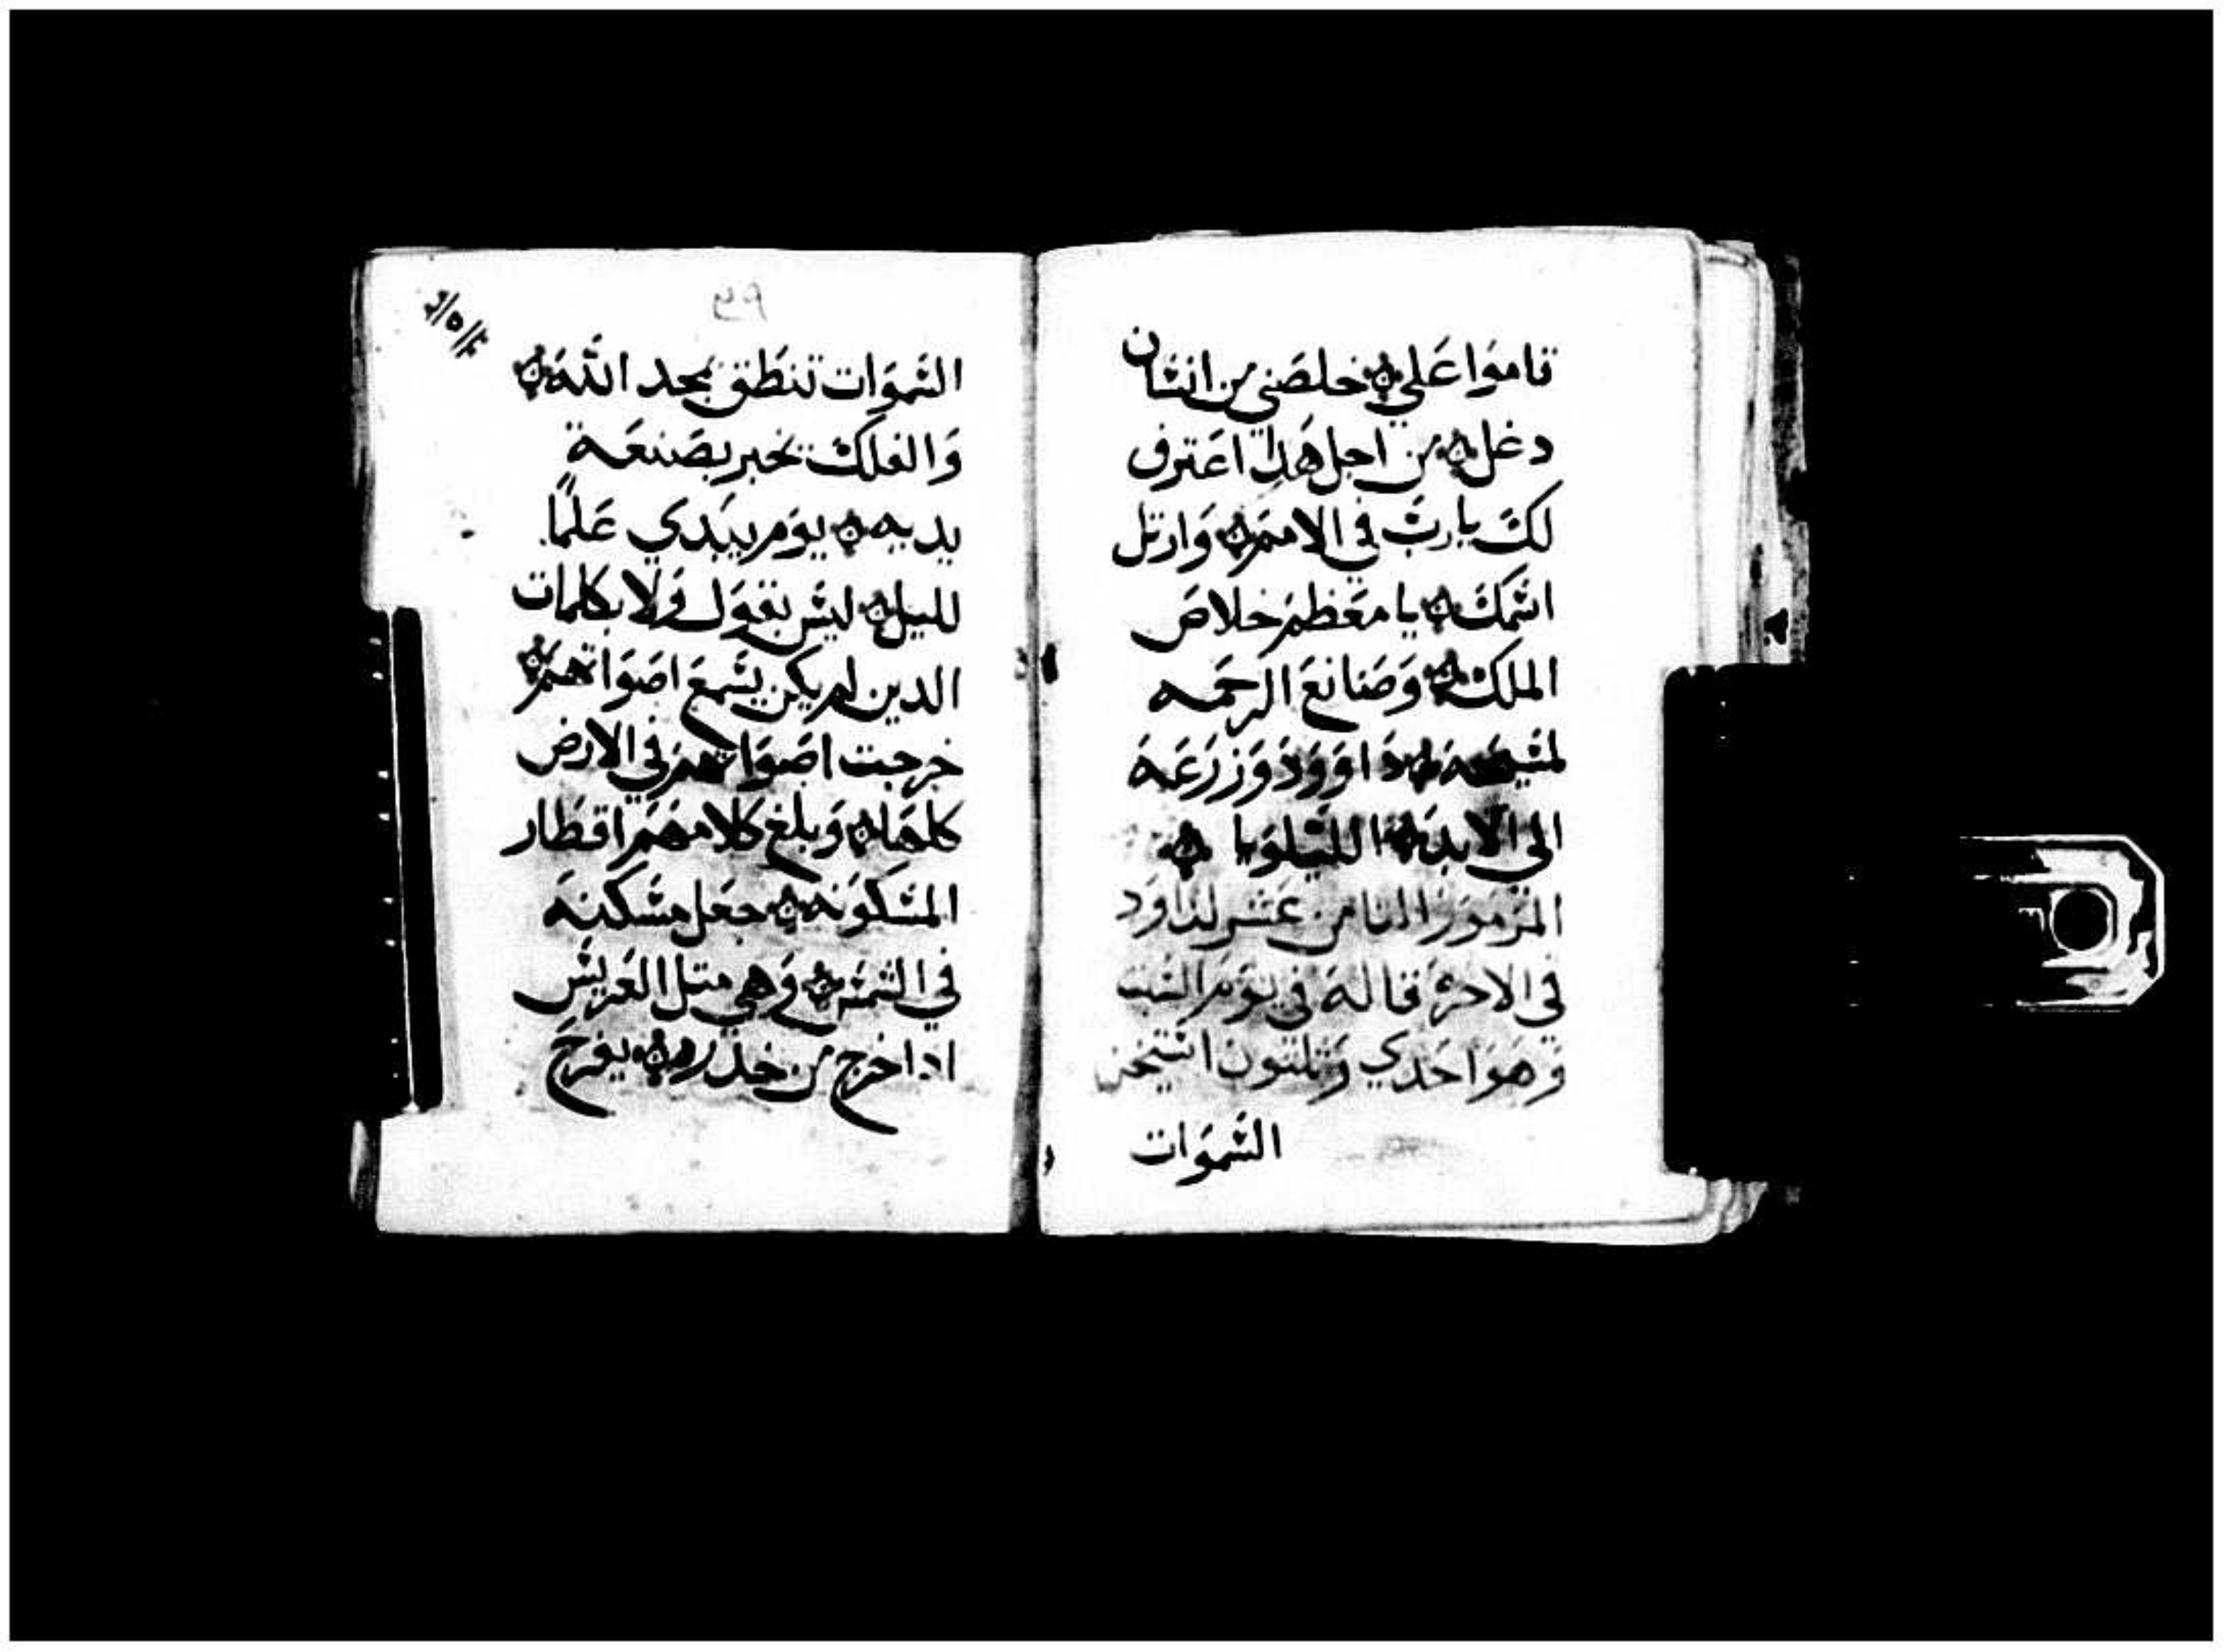 قاموا علي خلصني من انسان
دغل من اجل هدا اعترف
لك يارب في الامم وارتل
اسمك يا معظم خلاص
الملك وصانع الرحمه
لمسيحه داوود وزرعه
الي الابد الليلويا
المزمور الثامن عشر لداود
في الاخر قاله في يوم السبت
وهو احدي وثلثون استيخن
السموات
السموات تنطق بمجد الله
والفلك تخبر بصنعة
يديه يوم يبدي علما
لليل ليس بقول ولا بكلمات
الدين لم يكن يسمع اصواتهم
خرجت اصواتهم في الارض
كلها وبلغ كلامهم اقطار
المسكونه جعل مسكنه
في الشمس وهي مثل العريس
ادا خرج من خدره يفرح